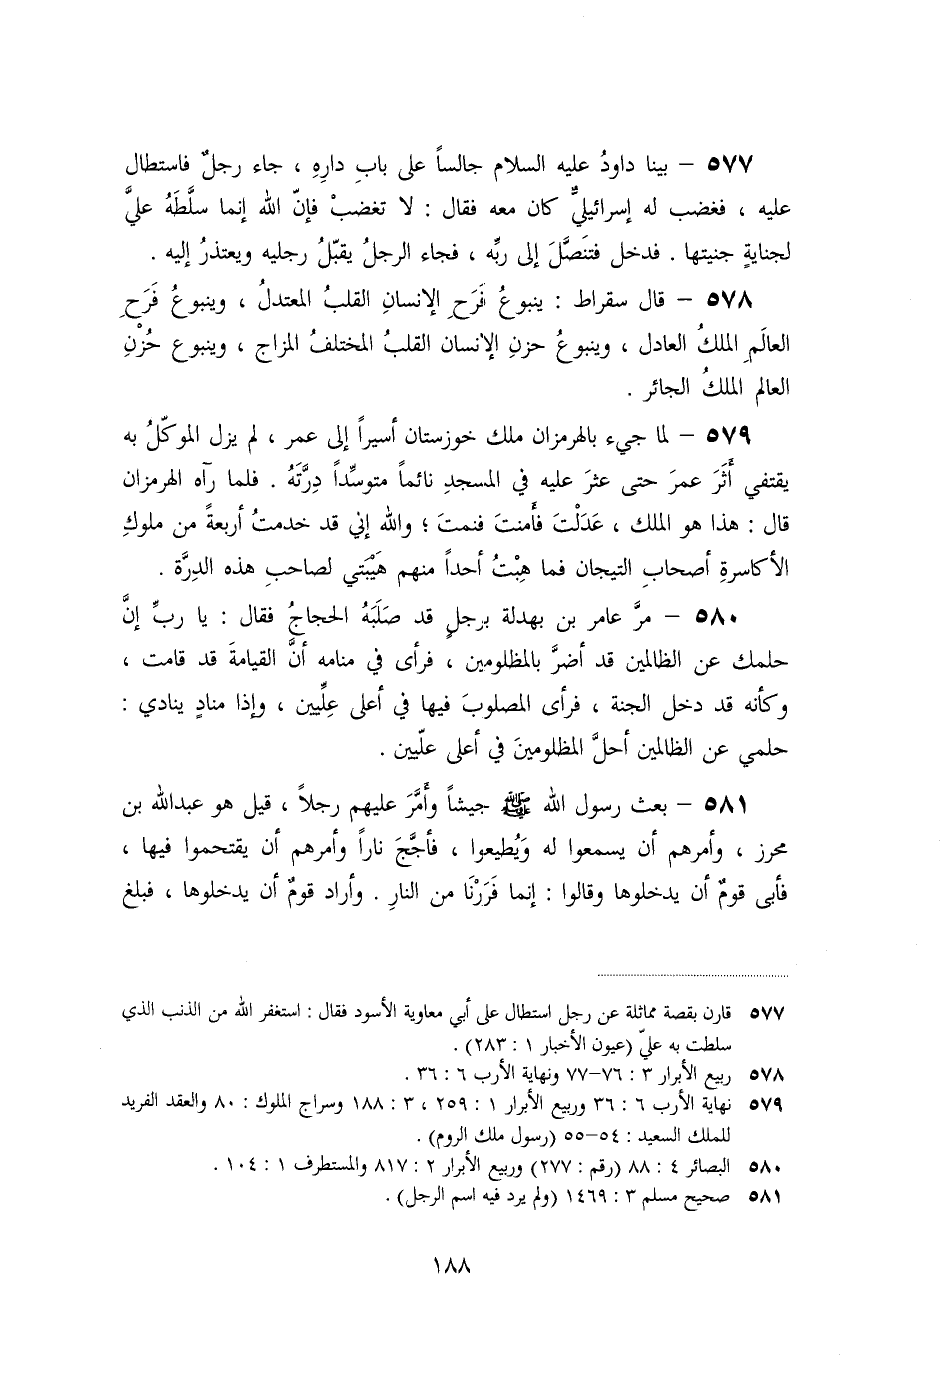 ٥٧٧ – بينا داودُ عليه السلام جالساً على بابِ دارِهِ ، جاء رجلٌ فاستطال
عليه ، فغضب له إسرائيليٌّ كان معه فقال : لا تغضبْ فإنّ الله إنما سلَّطَهُ عليَّ
لجنايةٍ جنيتها . فدخل فتَنَصَّلَ إلى ربِّه ، فجاء الرجلُ يقبّلُ رجليه ويعتذرُ إليه .
٥٧٨ – قال سقراط : ينبوعُ فَرَحِ الإنسانِ القلبُ المعتدلُ ، وينبوعُ فَرَحِ
العالَمِ الملكُ العادل ، وينبوعُ حزنِ الإنسان القلبُ المختلفُ المزاج ، وينبوع حُزْنِ
العالم الملكُ الجائر .
٥٧٩ – لما جيء بالهرمزان ملك خوزستان أسيراً إلى عمر ، لم يزل الموكّلُ به
يقتفي أَثَرَ عمرَ حتى عثرَ عليه في المسجدِ نائماً متوسِّداً دِرَّتَهُ . فلما رآه الهرمزان
قال : هذا هو الملك ، عَدَلْتَ فأَمنتَ فنمتَ ؛ والله إني قد خدمتُ أربعةً من ملوكِ
الأكاسرةِ أصحابِ التيجان فما هِبْتُ أحداً منهم هَيْبَتي لصاحبِ هذه الدِرَّة .
٥٨٠ – مرَّ عامر بن بهدلة برجلٍ قد صَلَبَهُ الحجاجُ فقال : يا ربِّ إنَّ
حلمك عن الظالمين قد أضرَّ بالمظلومين ، فرأى في منامه أنَّ القيامةَ قد قامت ،
وكأنه قد دخل الجنة ، فرأى المصلوبَ فيها في أعلى عِلِّيين ، وإذا منادٍ ينادي :
حلمي عن الظالمين أحلَّ المظلومينَ في أعلى علّيين .
٥٨١ – بعث رسول الله ﷺ جيشاً وأَمَّرَ عليهم رجلاً ، قيل هو عبدالله بن
محرز ، وأمرهم أن يسمعوا له وَيُطيعوا ، فأجَّجَ ناراً وأمرهم أن يقتحموا فيها ،
فأبى قومٌ أن يدخلوها وقالوا : إنما فَرَرْنَا من النارِ . وأراد قومٌ أن يدخلوها ، فبلغ
٥٧٧ قارن بقصة مماثلة عن رجل استطال على أبي معاوية الأسود فقال : استغفر الله من الذنب الذي
سلطت به عليّ (عيون الأخبار ١ : ٢٨٣) .
٥٧٨ ربيع الأبرار ٣ : ٧٦–٧٧ ونهاية الأرب ٦ : ٣٦ .
٥٧٩ نهاية الأرب ٦ : ٣٦ وربيع الأبرار ١ : ٢٥٩ ، ٣ : ١٨٨ وسراج الملوك : ٨٠ والعقد الفريد
للملك السعيد : ٥٤–٥٥ (رسول ملك الروم) .
٥٨٠ البصائر ٤ : ٨٨ (رقم : ٢٧٧) وربيع الأبرار ٢ : ٨١٧ والمستطرف ١ : ١٠٤ .
٥٨١ صحيح مسلم ٣ : ١٤٦٩ (ولم يرد فيه اسم الرجل) .
١٨٨